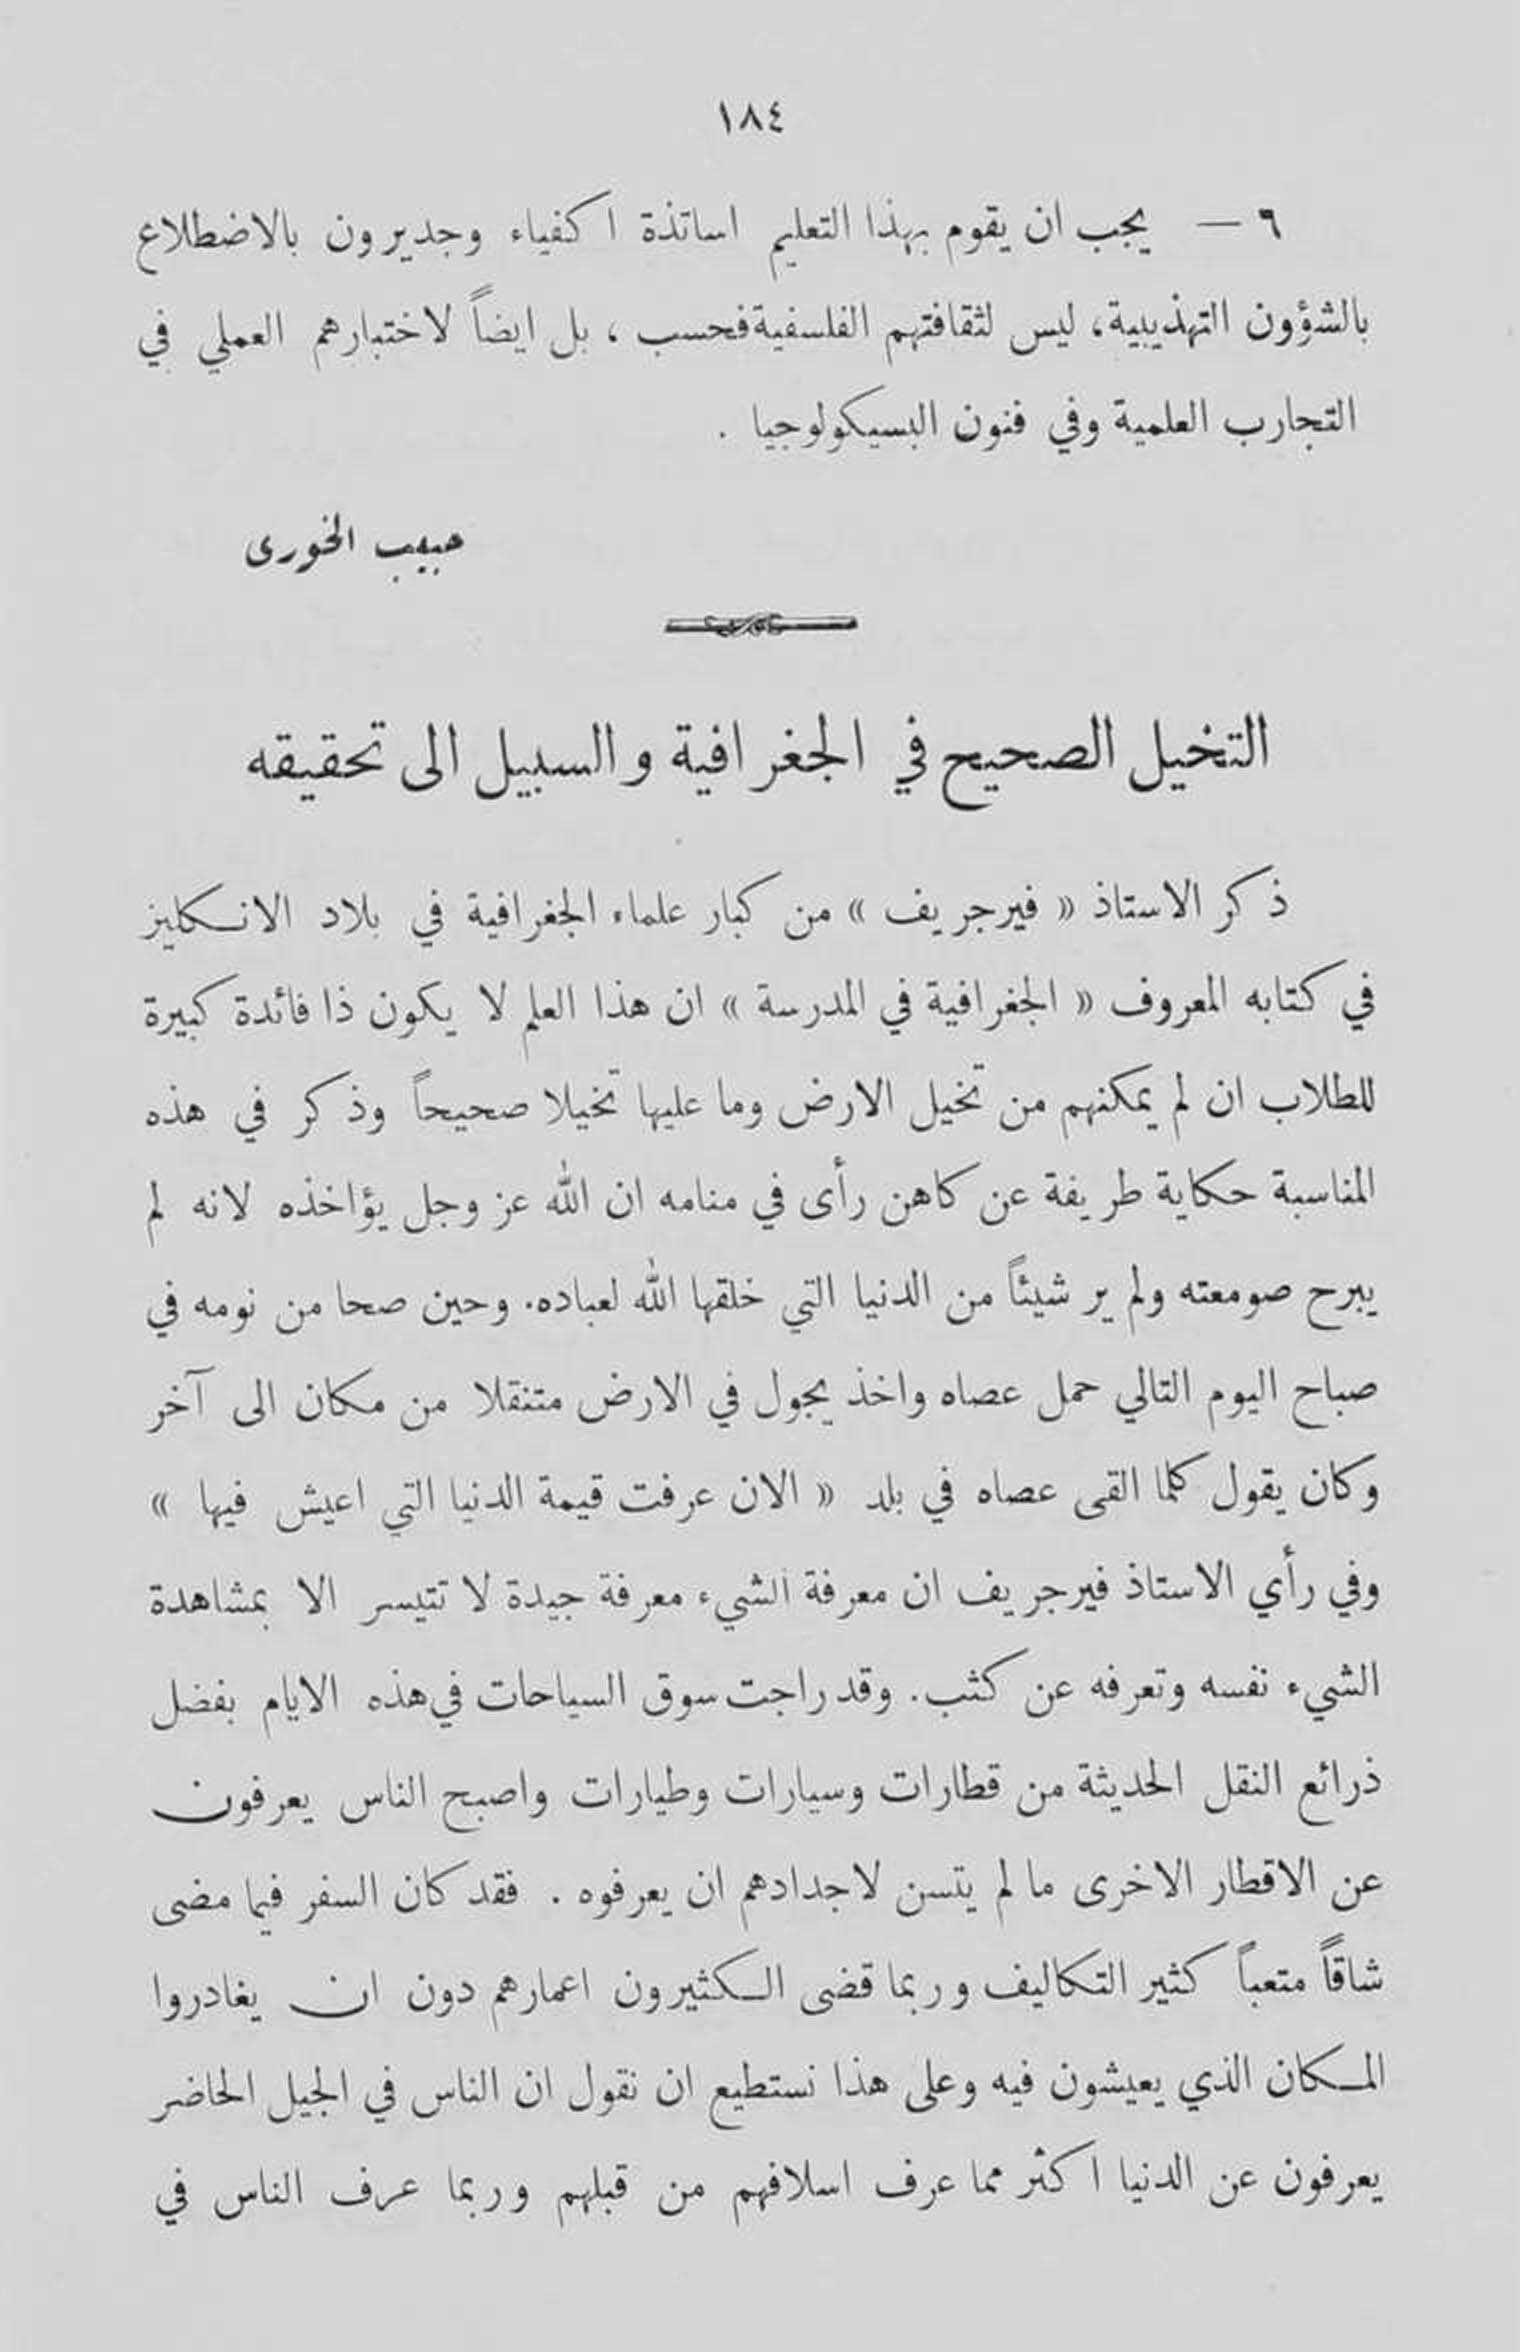 ١٨٤
٦ — يجب ان يقوم بهذا التعليم اساتذة اكفياء وجديرون بالاضطلاع
بالشؤون التهذيبية، ليس لثقافتهم الفلسفية فحسب ، بل ايضاً لاختبارهم العملي في
التجارب العلمية وفي فنون البسيكولوجيا .
حبيب الخوري
التخيل الصحيح في الجغرافية والسبيل الى تحقيقه
ذكر الاستاذ « فيرجريف » من كبار علماء الجغرافية في بلاد الانكليز
في كتابه المعروف « الجغرافية في المدرسة » ان هذا العلم لا يكون ذا فائدة كبيرة
للطلاب ان لم يمكنهم من تخيل الارض وما عليها تخيلا صحيحاً وذكر في هذه
المناسبة حكاية طريفة عن كاهن رأى في منامه ان الله عز وجل يؤاخذه لانه لم
يبرح صومعته ولم ير شيئاً من الدنيا التي خلقها الله لعباده. وحين صحا من نومه في
صباح اليوم التالي حمل عصاه واخذ يجول في الارض متنقلا من مكان الى آخر
وكان يقول كلما القى عصاه في بلد « الان عرفت قيمة الدنيا التي اعيش فيها »
وفي رأي الاستاذ فيرجريف ان معرفة الشيء معرفة جيدة لا تتيسر الا بمشاهدة
الشيء نفسه وتعرفه عن كثب. وقد راجت سوق السياحات في هذه الايام بفضل
ذرائع النقل الحديثة من قطارات وسيارات وطيارات واصبح الناس يعرفون
عن الاقطار الاخرى ما لم يتسن لاجدادهم ان يعرفوه . فقد كان السفر فيما مضى
شاقاً متعباً كثير التكاليف وربما قضى الكثيرون اعمارهم دون ان يغادروا
المكان الذي يعيشون فيه وعلى هذا نستطيع ان نقول ان الناس في الجيل الحاضر
يعرفون عن الدنيا اكثر مما عرف اسلافهم من قبلهم وربما عرف الناس في